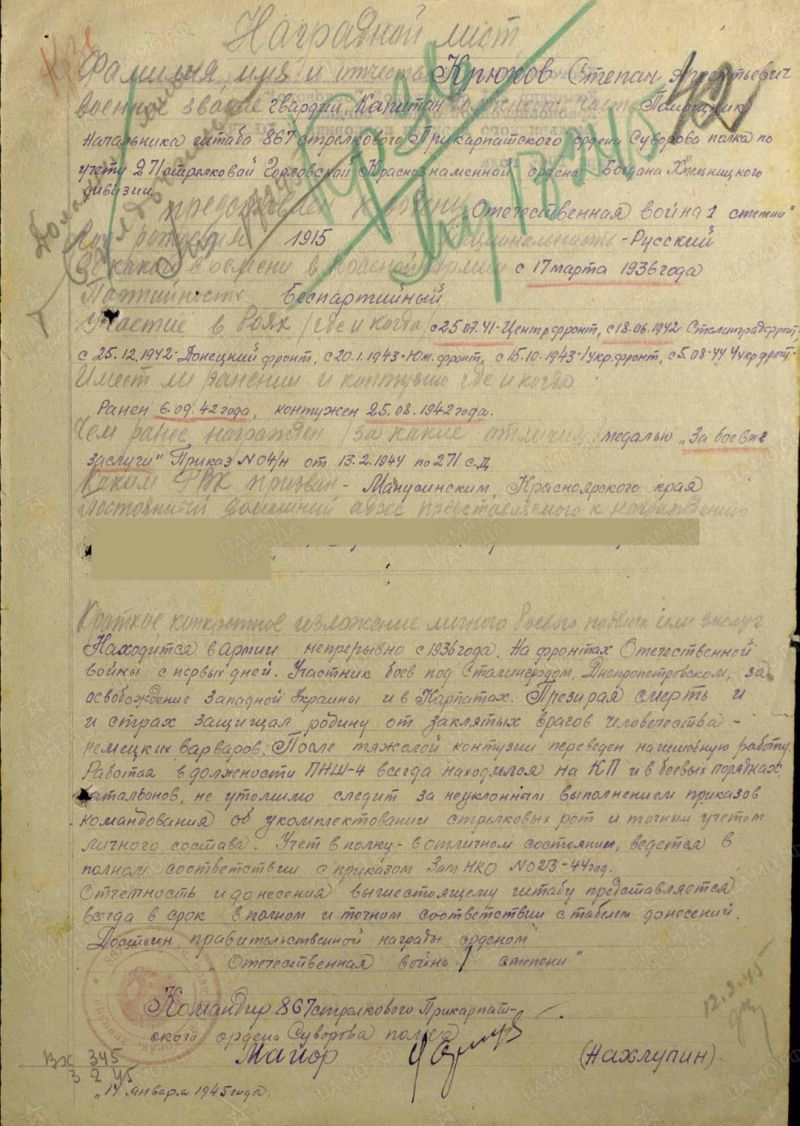 Наградной лист
Фамилия, имя и отчество Крюков Степан
Военное звание гвардии Капитан Помощник
Начальника штаба 867 стрелкового Прикарпатского ордена Суворова полка по
учету 271 стрелковой Горловской Краснознаменной ордена Богдана Хмельницкого
дивизии
представлен к ордену „Отечественная война 1 степени"
Год рождения 1915 Национальность - Русский
С какого времени в Красной Армии с 17 марта 1936 года
Партийность Беспартийный
Участие в боях /где и когда/ с 25.07.41-Центр.фронт, с 18.06.1942 Сталинградфронт-
с 25.12.1942-Донецкий фронт, с 20.1.1943-Юж.фронт, с 15.10.1943-1 укр.фронт, с 5.08.44 4 укр фронт-
Имеет ли ранения и контузии где и когда
Ранен 6.09.42 года, контужен 25.08.1942 года.
Чем ранее награжден /за какие отличия/ медалью „За боевые
заслуги" Приказ N 04/н от 13.2.1944 по 271 с.д
Каким РВК призван - Манусинским, Красноярского края
Постоянный домашний адрес представляемого к награждению
Краткое конкретное изложение личного боевого подвига или заслуг
Находится в армии непрерывно с 1936 года. На фронтах Отечественной
войны с первых дней. Участник боев под Сталинградом, Днепропетровском, за
освобождение Западной Украины и в Карпатах. Презирая смерть и
и страх защищал родину от заклятых врагов человечества -
немецких варваров. После тяжелой контузии переведен на штабную работу.
Работая в должности ПНШ-4 всегда находился на КП и в боевых порядках
батальонов, не утолимо следит за неуклонным выполнением приказов
командования об укомплектовании стрелковых рот и точным учетом
личного состава. Учет в полку - в отличном состоянии, ведется в
полном соответствии с приказом Зам НКО N 023-44 год.
Отчетность и донесения вышестоящему штабу представляется
всегда в срок в полном и точном соответствии с табелем донесений.
Достоин правительственной награды орденом
„Отечественная война 1 степени"
Командир 867 стрелкового Прикарпат-
ского ордена Суворова полка
Майор (Нахлупин)
12.2.45
Вх 345
3 2 45
„14 января 1945 года.